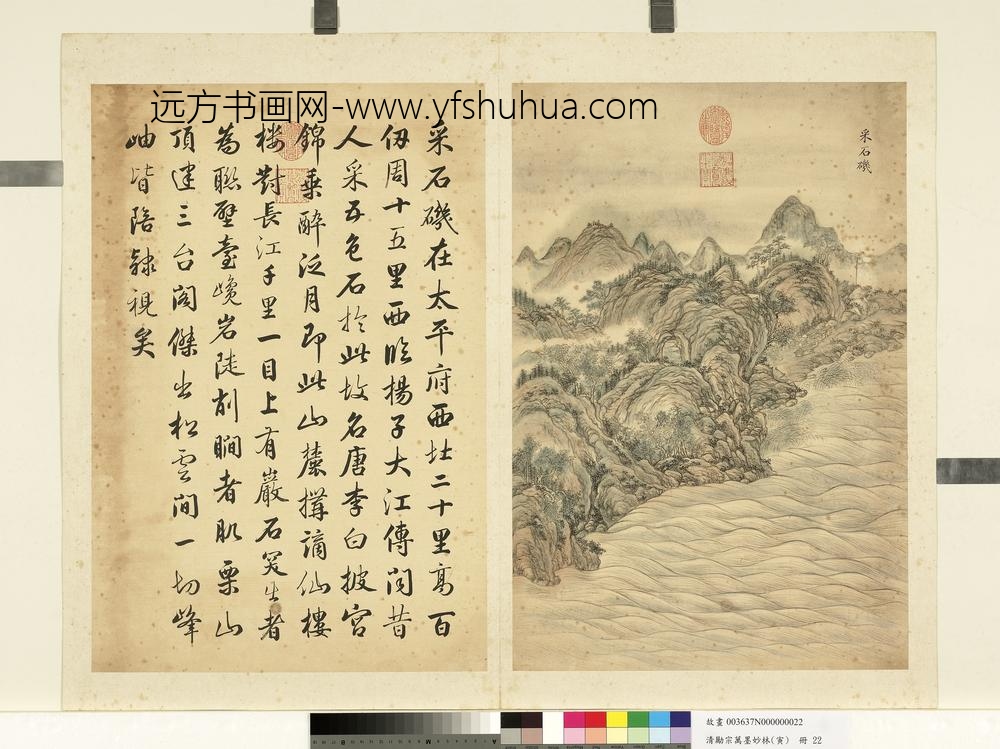 远方书画网-www.yfshuhua.com
采石磯
采石磯在太平府西北二十里高百
仭周十五里西臨楊子大江傳聞昔
人采五色石於此故名唐李白披宮
錦乗醉泛月即此山麓搆謫仙樓
樓對長江千里一目上有巖石突出者
為聯壁臺巉岩陡削瞯者肌栗山
頂建三台閣傑出松雲間一切峰
岫皆陪隷視矣
故畫 003637N000000022
清勵宗萬墨妙林(寅) 冊 22